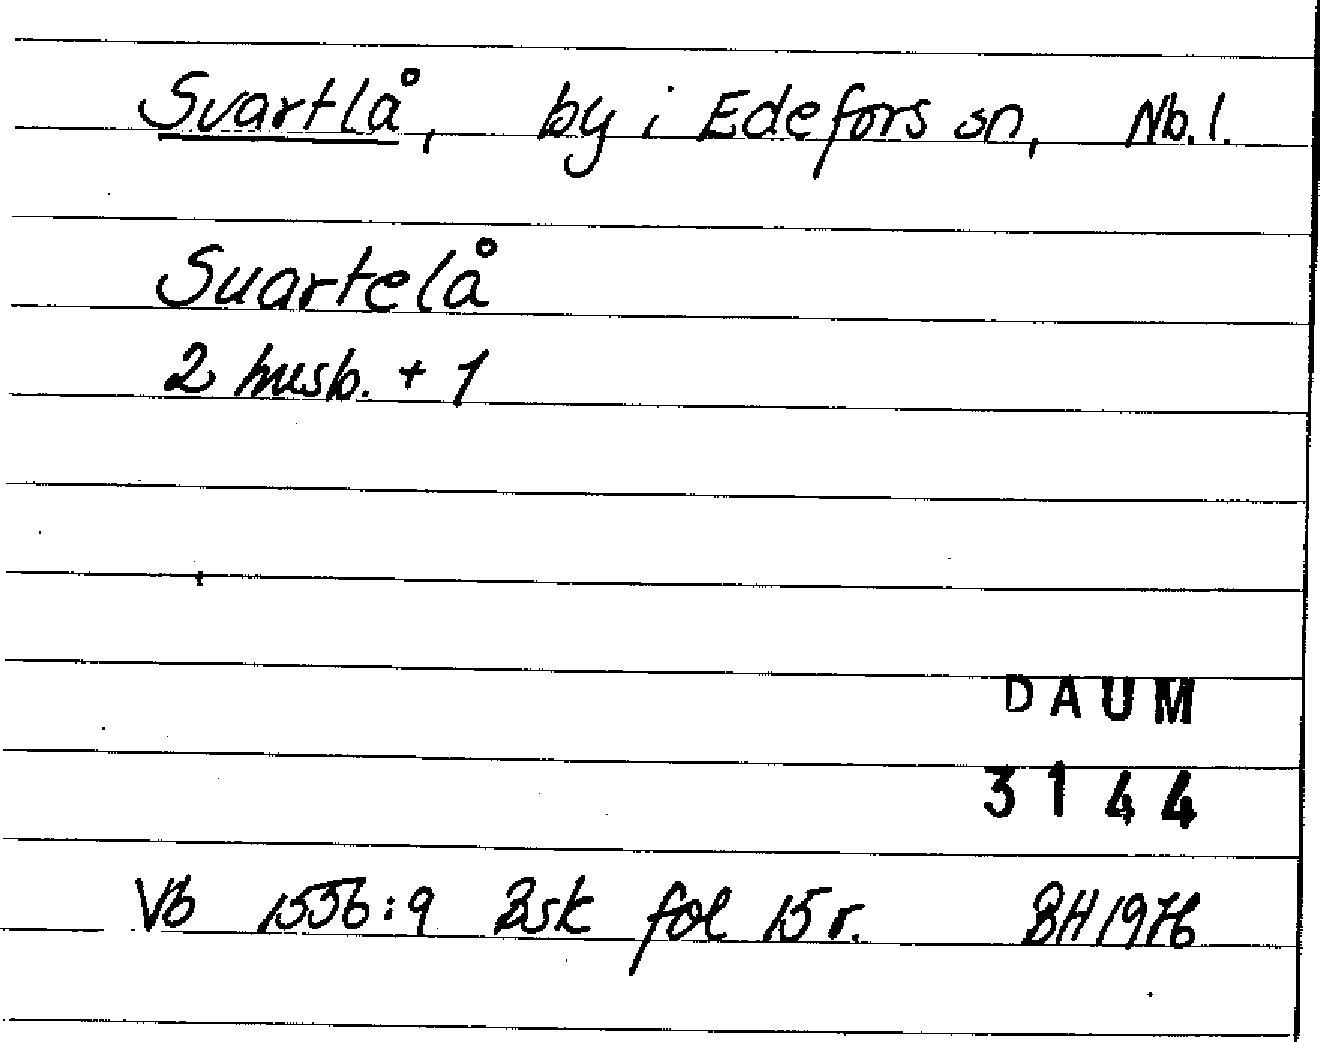 Svartlå, by i Edefors sn, Nb.l.
Suartelå
2 husb. + 1
DAUM
3144
Vb 1556:9 Bsk fol 15 r. BH 1976